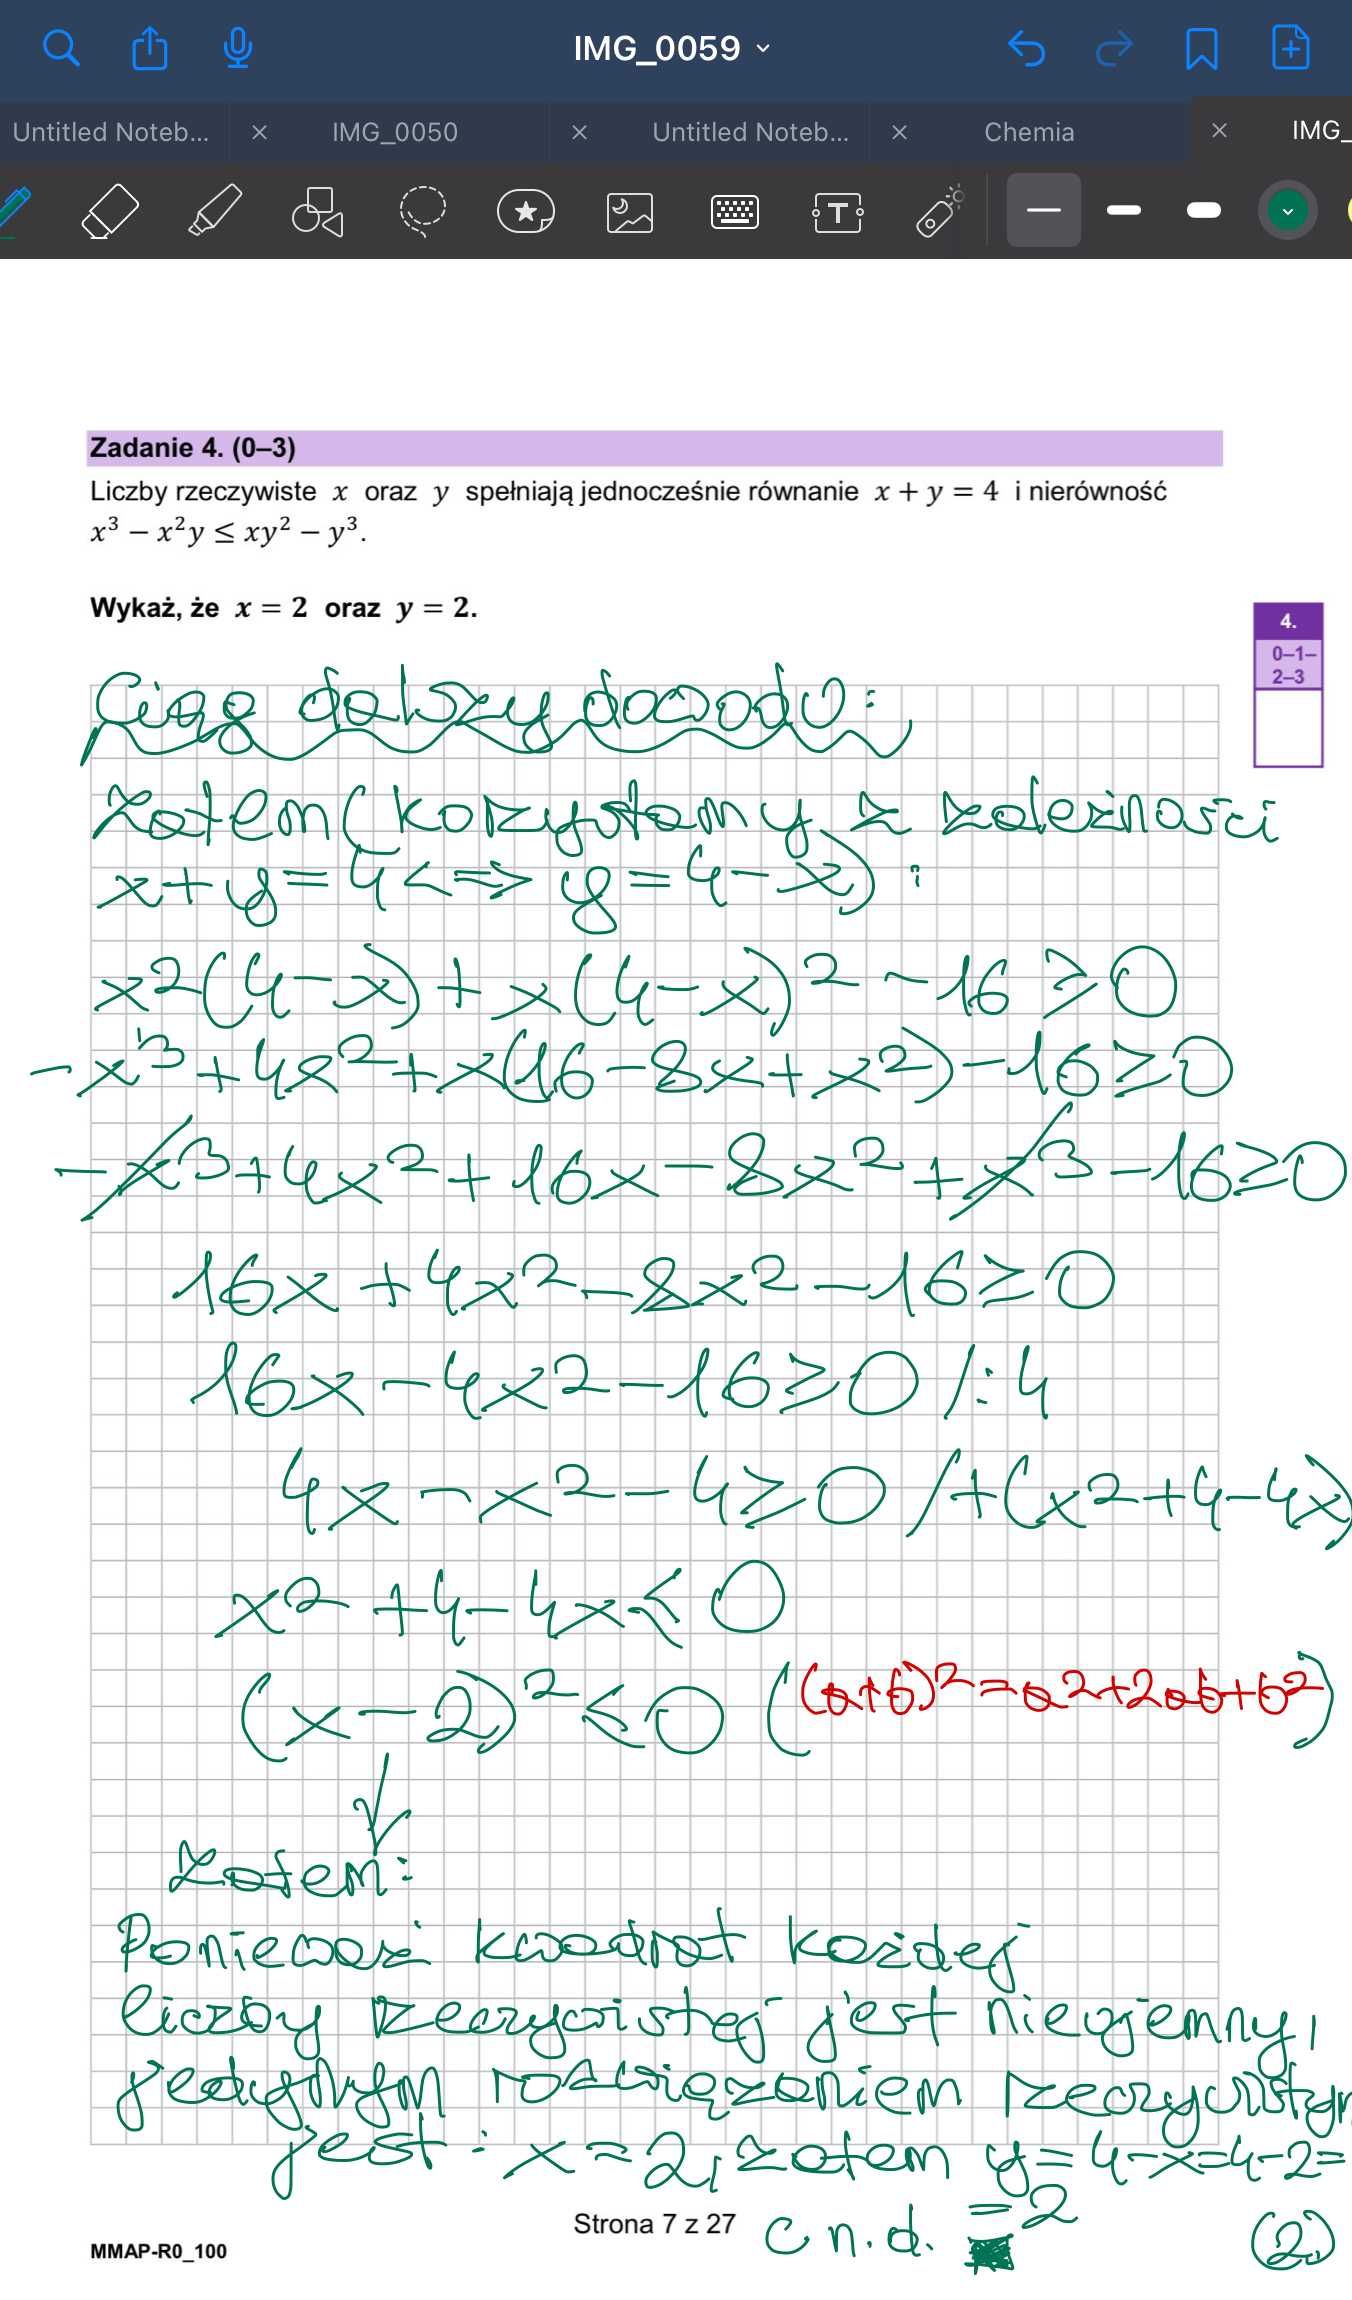 IMG_0059
Untitled Noteb...
IMG_0050
Untitled Noteb...
Chemia
IMG_
T
Zadanie 4. (0–3)
Liczby rzeczywiste x oraz y spełniają jednocześnie równanie x + y = 4 i nierówność
x³ − x²y ≤ xy² − y³.
Wykaż, że x = 2 oraz y = 2.
4.
0–1–
2–3
Ciąg dalszy dowodu:
Zatem (korzystamy z zależności
x+y=4 <=> y=4-x) :
x²(4-x)+x(4-x)²-16≥0
-x³+4x²+x(16-8x+x²)-16≥0
-x³+4x²+16x-8x²+x³-16≥0
16x+4x²-8x²-16≥0
16x-4x²-16≥0 /:4
4x-x²-4≥0 /+(x²+4-4x)
x²+4-4x≤0
(x-2)²≤0 ((a+b)²=a²+2ab+b²)
Zatem:
Ponieważ kwadrat każdej
liczby rzeczywistej jest nieujemny,
jedynym rozwiązaniem rzeczywistym
jest: x=2, zatem y=4-x=4-2=
=2
Strona 7 z 27
c.n.d.
(2)
MMAP-R0_100